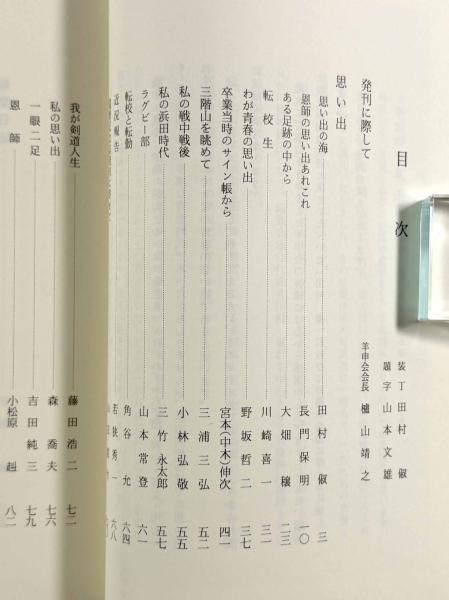 目次
装丁 田村 俶
題字 山本文雄
発刊に際して 羊申会会長 櫨山靖之
思い出
思い出の海 田村 俶 三
恩師の思い出あれこれ 長門保明 一〇
ある足跡の中から 大畑 穣 二三
転校生 川崎喜一 三一
わが青春の思い出 野坂哲二 三七
卒業当時のサイン帳から 宮本(中木)伸次 四一
三階山を眺めて 三浦三弘 五二
私の戦中戦後 小林弘敬 五五
私の浜田時代 三竹永太郎 五七
ラグビー部 山本常登 六一
転校と転勤 角谷 允 六四
近況報告 若狭秀一 六八
我が剣道人生 藤田浩二 七二
私の思い出 森 喬夫 七六
一眼二足 吉田純三 七九
恩師 小松原 八二